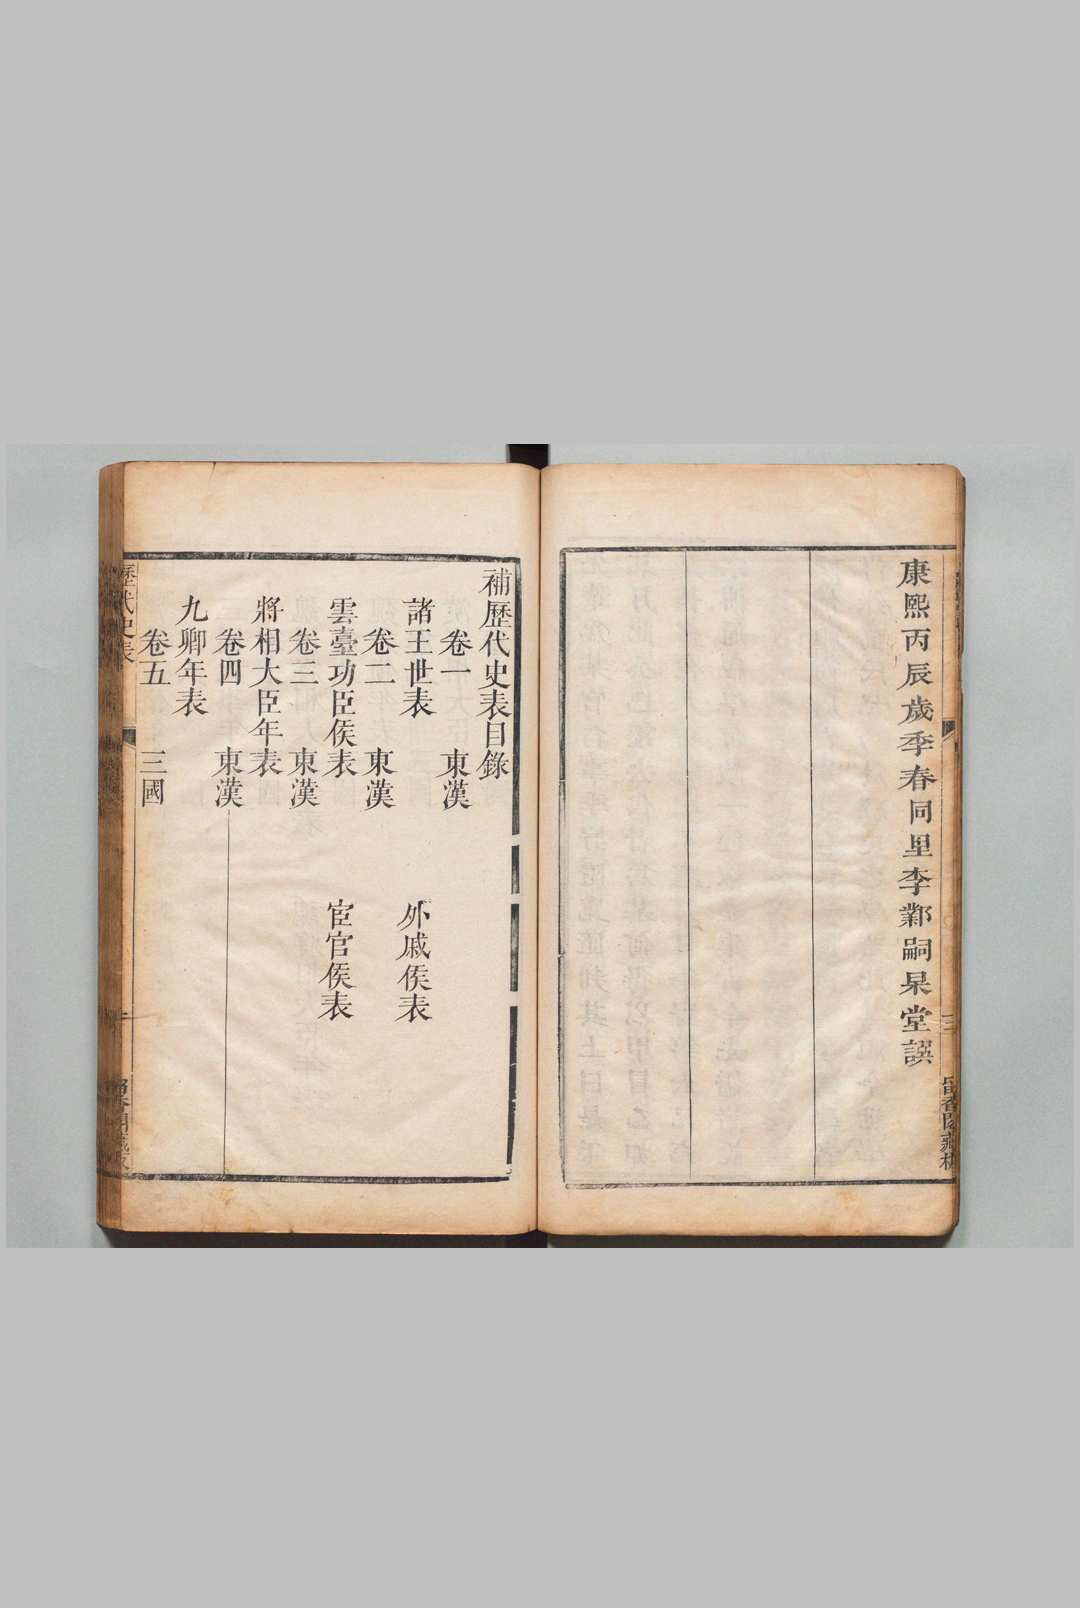 康熙丙辰歲季春同里李鄴嗣杲堂譔
補歷代史表目錄
卷一 東漢
諸王世表 外戚侯表
卷二 東漢
雲臺功臣侯表 宦官侯表
卷三 東漢
將相大臣年表
卷四 東漢
九卿年表
卷五 三國
歷代史表